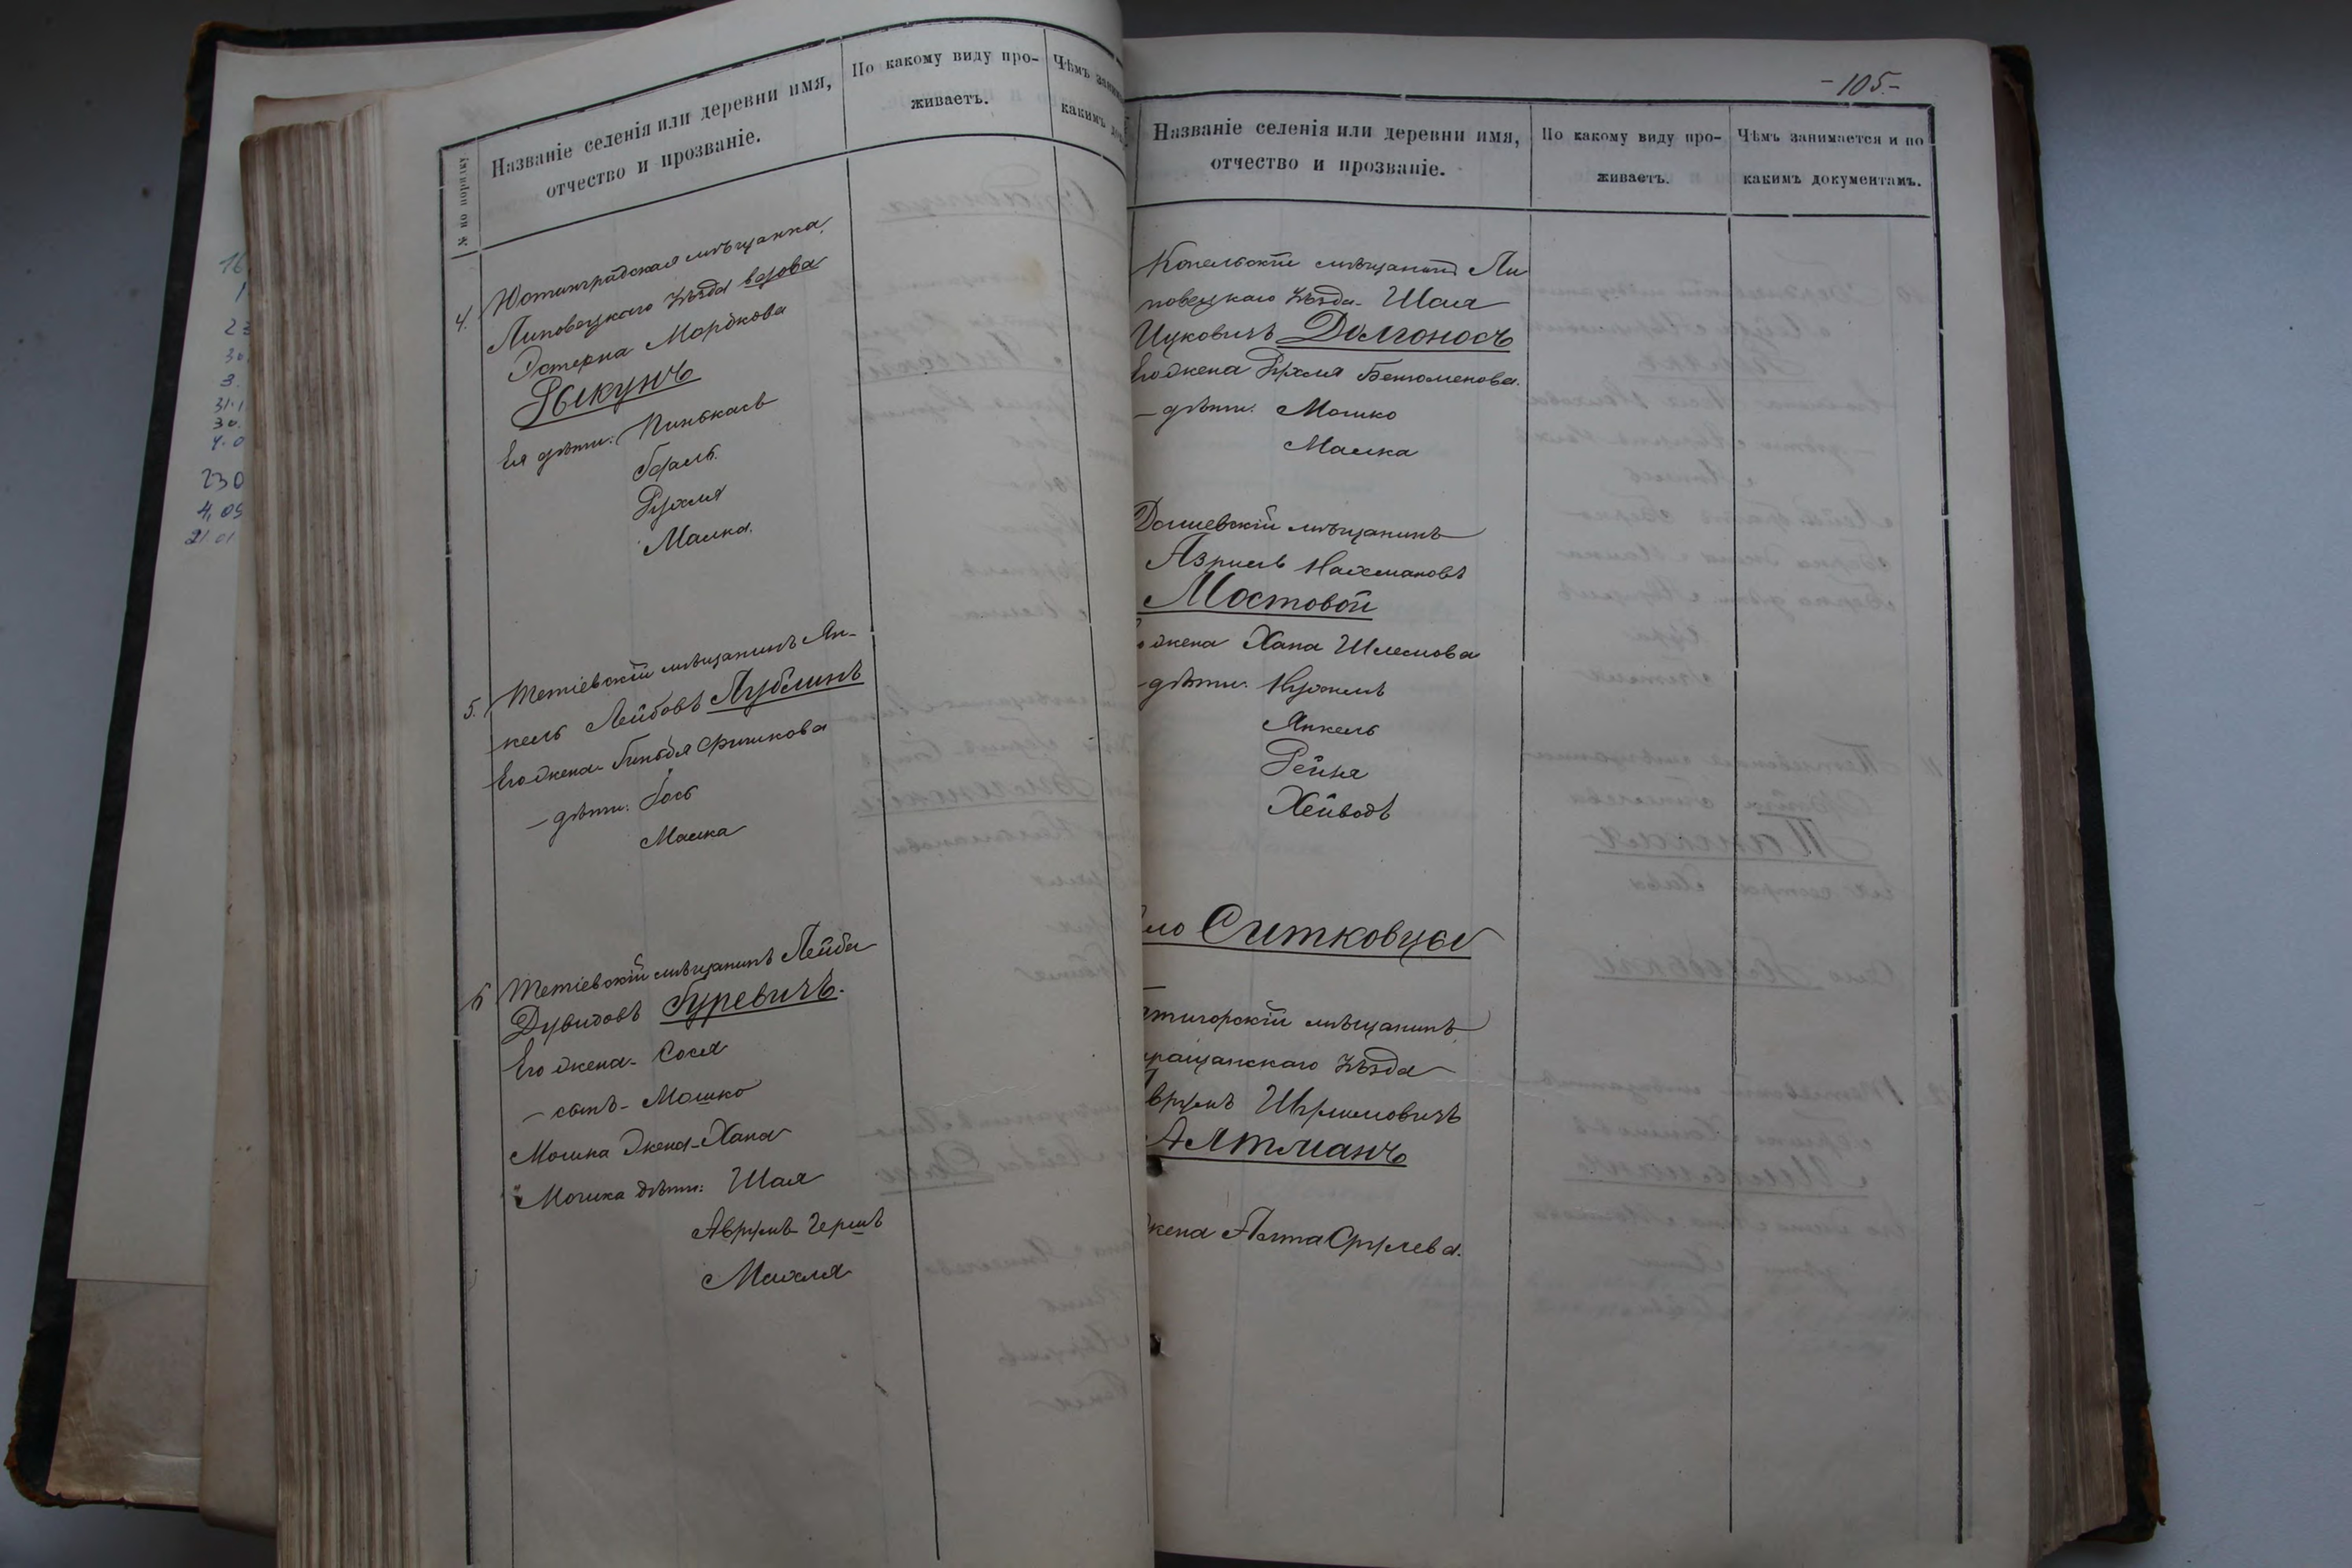 № по порядку
Названіе селенія или деревни имя,
отчество и прозваніе.
По какому виду про-
живаетъ.
Чѣмъ
какимъ
4. Юстинградская мѣщанка
Липовецкаго уѣзда вдова
Эстерна Мордкова
Рыкунъ
Ея дѣти: Пинькасъ
Рухля
Малка.
5. Тетіевскій мѣщанинъ Ян-
кель Лейбовъ Лублинъ
Его жена Гиньдя Фишкова
– дѣти: Іось
Малка
6 Тетіевскій мѣщанинъ Лейба
Дувидовъ Гуревичъ.
Его жена – Сося
– сынъ – Мошко
Мошка жена – Хана
Мошка дѣти: Шая
Аврумъ Гершъ
Махля
16
1
23
30.
3.
31.1
30.
4.0
230
4,05
21 01
– 105. –
Названіе селенія или деревни имя,
отчество и прозваніе.
По какому виду про-
живаетъ.
Чѣмъ занимается и по
какимъ документамъ.
Копельскій мѣщанинъ Ли
повецкаго уѣзда Шая
Ицковичъ Долгоносъ
Его жена Рухля Бенюменова.
– дѣти: Мошко
Малка
Дашевскій мѣщанинъ
Азриль Нахмановъ
Мостовой
жена Хана Шлемова
– дѣти: Нухимъ
Янкель
Рейзя
Хейводъ
ло Ситковцы
тигорскій мѣщанинъ
ращанскаго уѣзда
врумъ Шулимовичъ
Алтманъ
жена Алта Срулева.